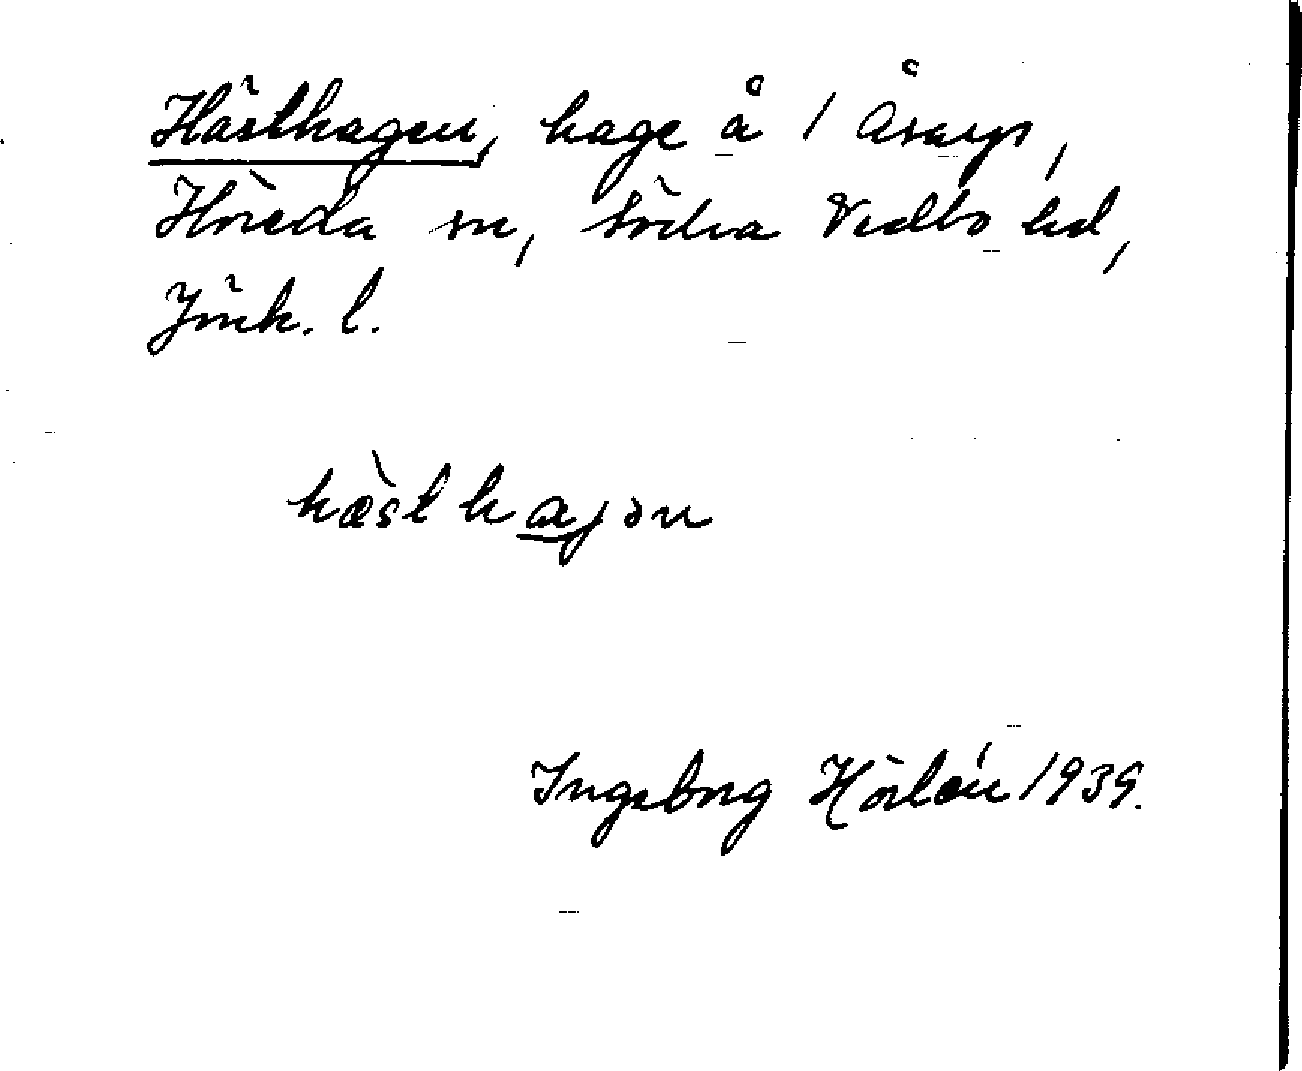 Hästhagen, hage å 1 Åsarp,
Höreda sn, Södra Vedbo hd,
Jönk. l.
hæ̀st hajən
Ingeborg Hörlén 1939.